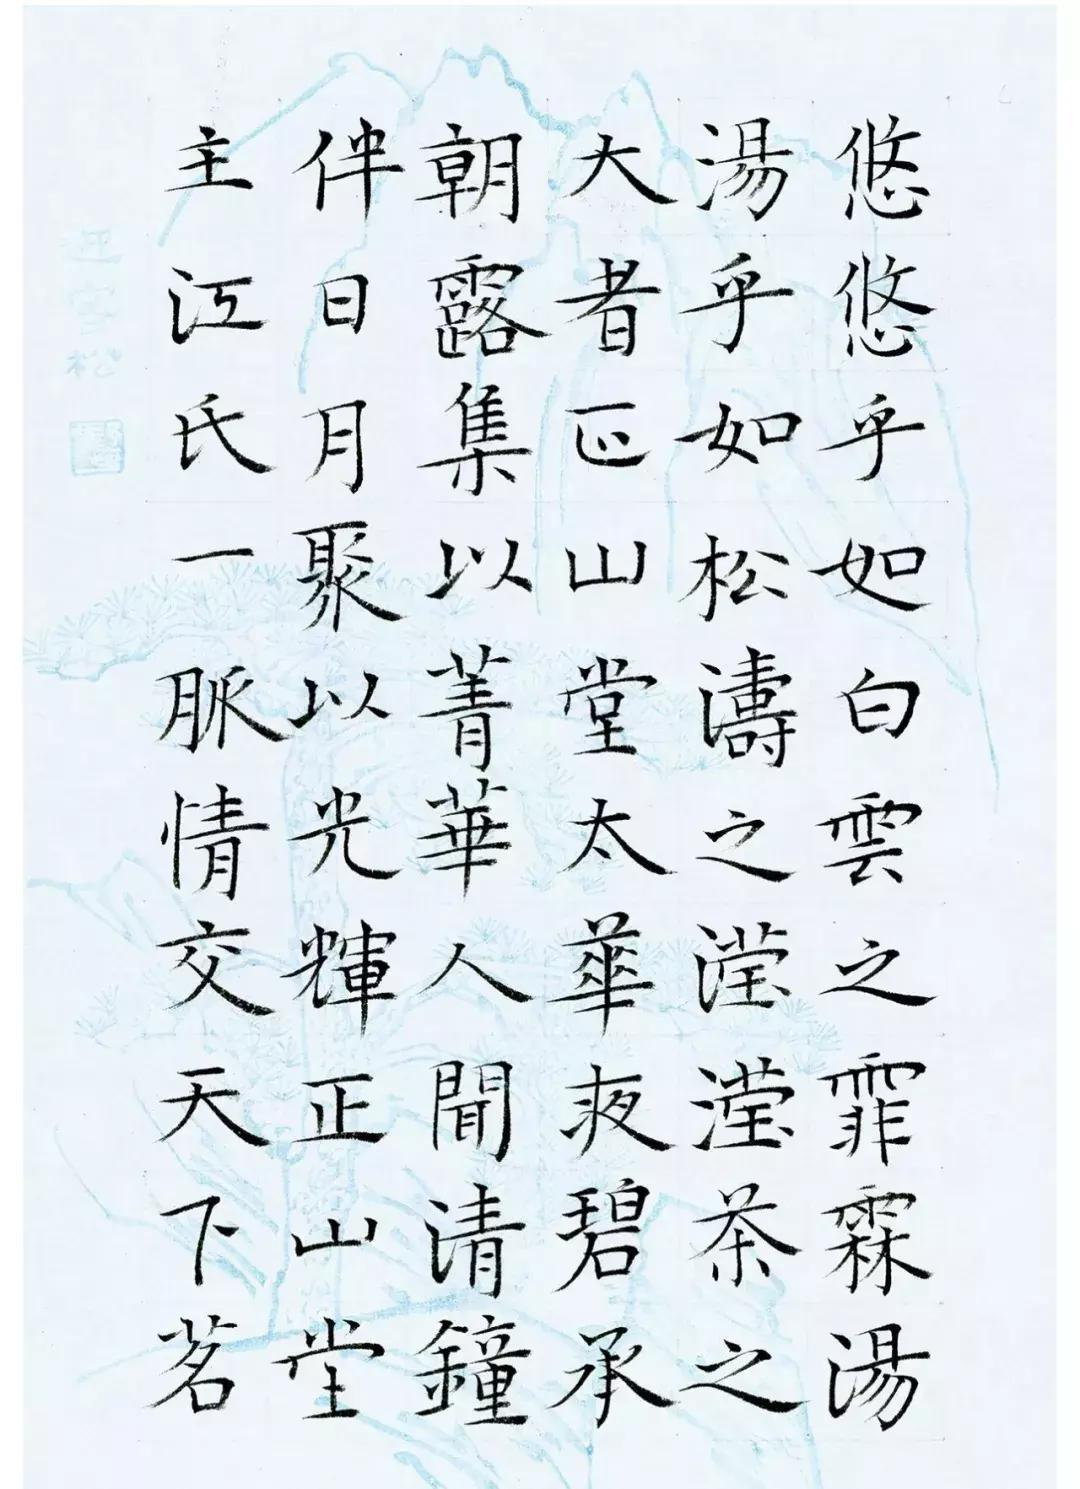 悠悠乎如白雲之霏霖湯
湯乎如松濤之滢滢茶之
大者正山堂太華夜碧承
朝露集以菁華人聞清鐘
伴日月聚以光輝正山堂
主江氏一脈情交天下茗
迎客松